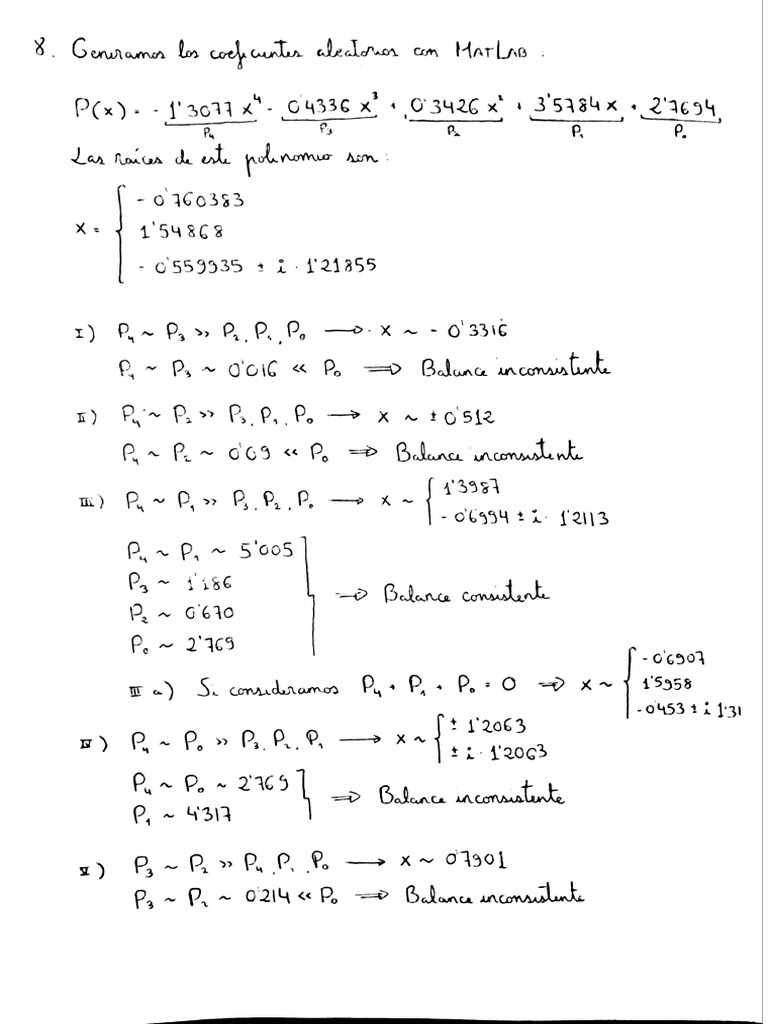 8. Generamos los coeficientes aleatorios con MATLAB:
P(x) = - 1'3077 x⁴ - 0'4336 x³ + 0'3426 x² + 3'5784 x + 2'7694,
P₄ P₃ P₂ P₁ P₀
Las raíces de este polinomio son:
x = { - 0'760383
1'54868
- 0'559935 ± i · 1'21855
I) P₄ ~ P₃ >> P₂, P₁, P₀ → x ~ - 0'3316
P₄ ~ P₃ ~ 0'016 << P₀ ⇒ Balance inconsistente
II) P₄ ~ P₂ >> P₃, P₁, P₀ → x ~ ± 0'512
P₄ ~ P₂ ~ 0'09 << P₀ ⇒ Balance inconsistente
III) P₄ ~ P₁ >> P₃, P₂, P₀ → x ~ { 1'3987
- 0'6994 ± i · 1'2113
P₄ ~ P₁ ~ 5'005
P₃ ~ 1'186
P₂ ~ 0'670
P₀ ~ 2'769
⇒ Balance consistente
III a) Si consideramos P₄ + P₁ + P₀ = 0 ⇒ x ~ { - 0'6907
1'5958
- 0'453 ± i 1'31
IV) P₄ ~ P₀ >> P₃, P₂, P₁ → x ~ { ± 1'2063
± i · 1'2063
P₄ ~ P₀ ~ 2'769
P₁ ~ 4'317
⇒ Balance inconsistente
V) P₃ ~ P₂ >> P₄, P₁, P₀ → x ~ 0'7901
P₃ ~ P₂ ~ 0'214 << P₀ ⇒ Balance inconsistente